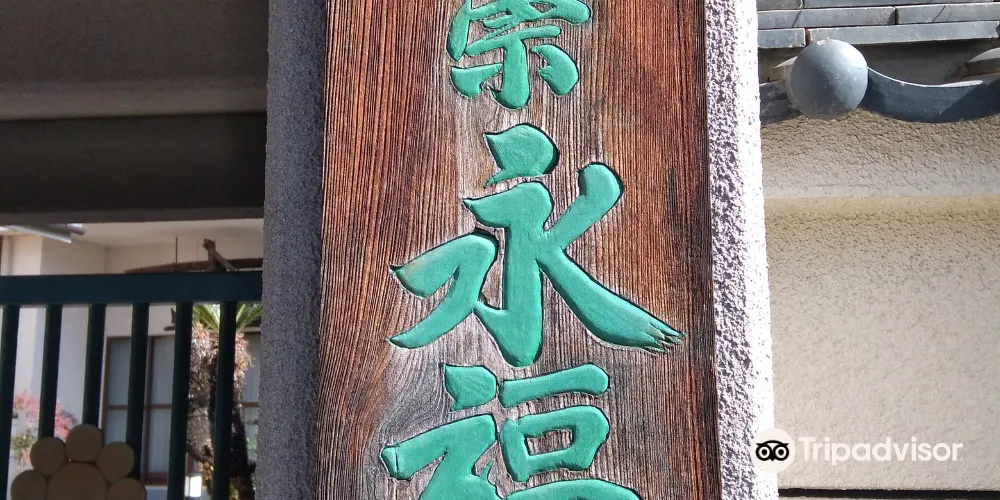 宗永福
Tripadvisor